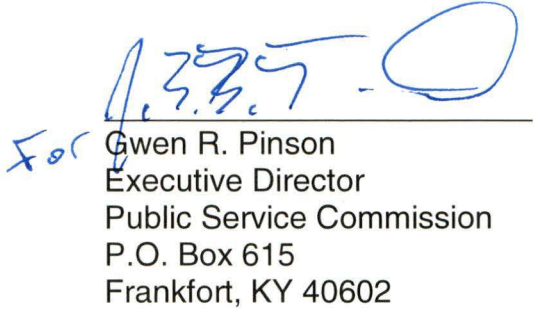 For Gwen R. Pinson
Executive Director
Public Service Commission
P.O. Box 615
Frankfort, KY 40602